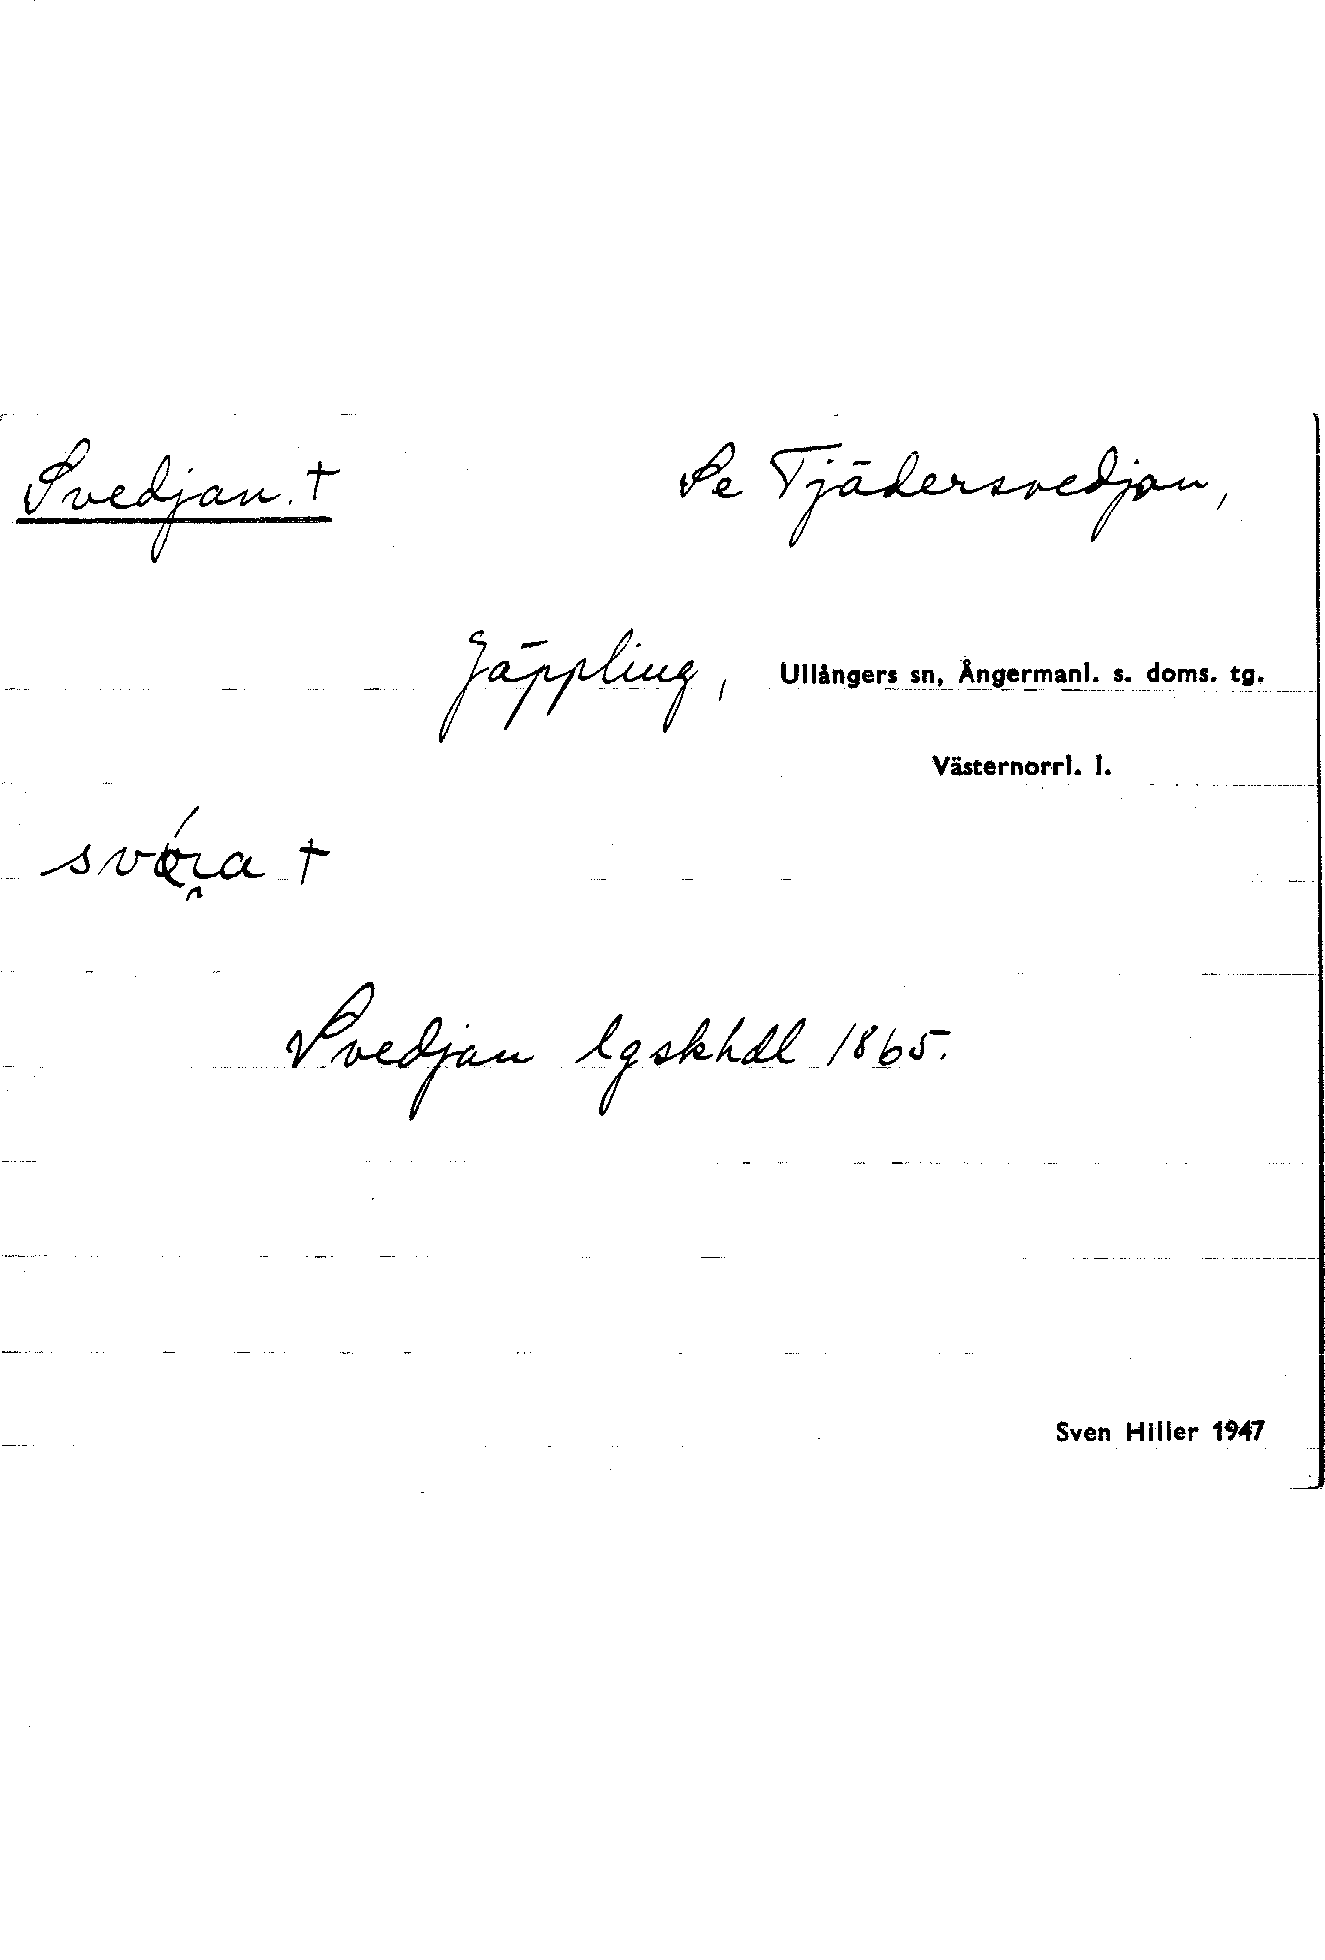 Svedjan. † Se Tjädersvedjan,
Jäppling, Ullångers sn, Ångermanl. s. doms. tg.
Västernorrl. l.
†
Svedjan lgskhdl 1865.
Sven Hiller 1947